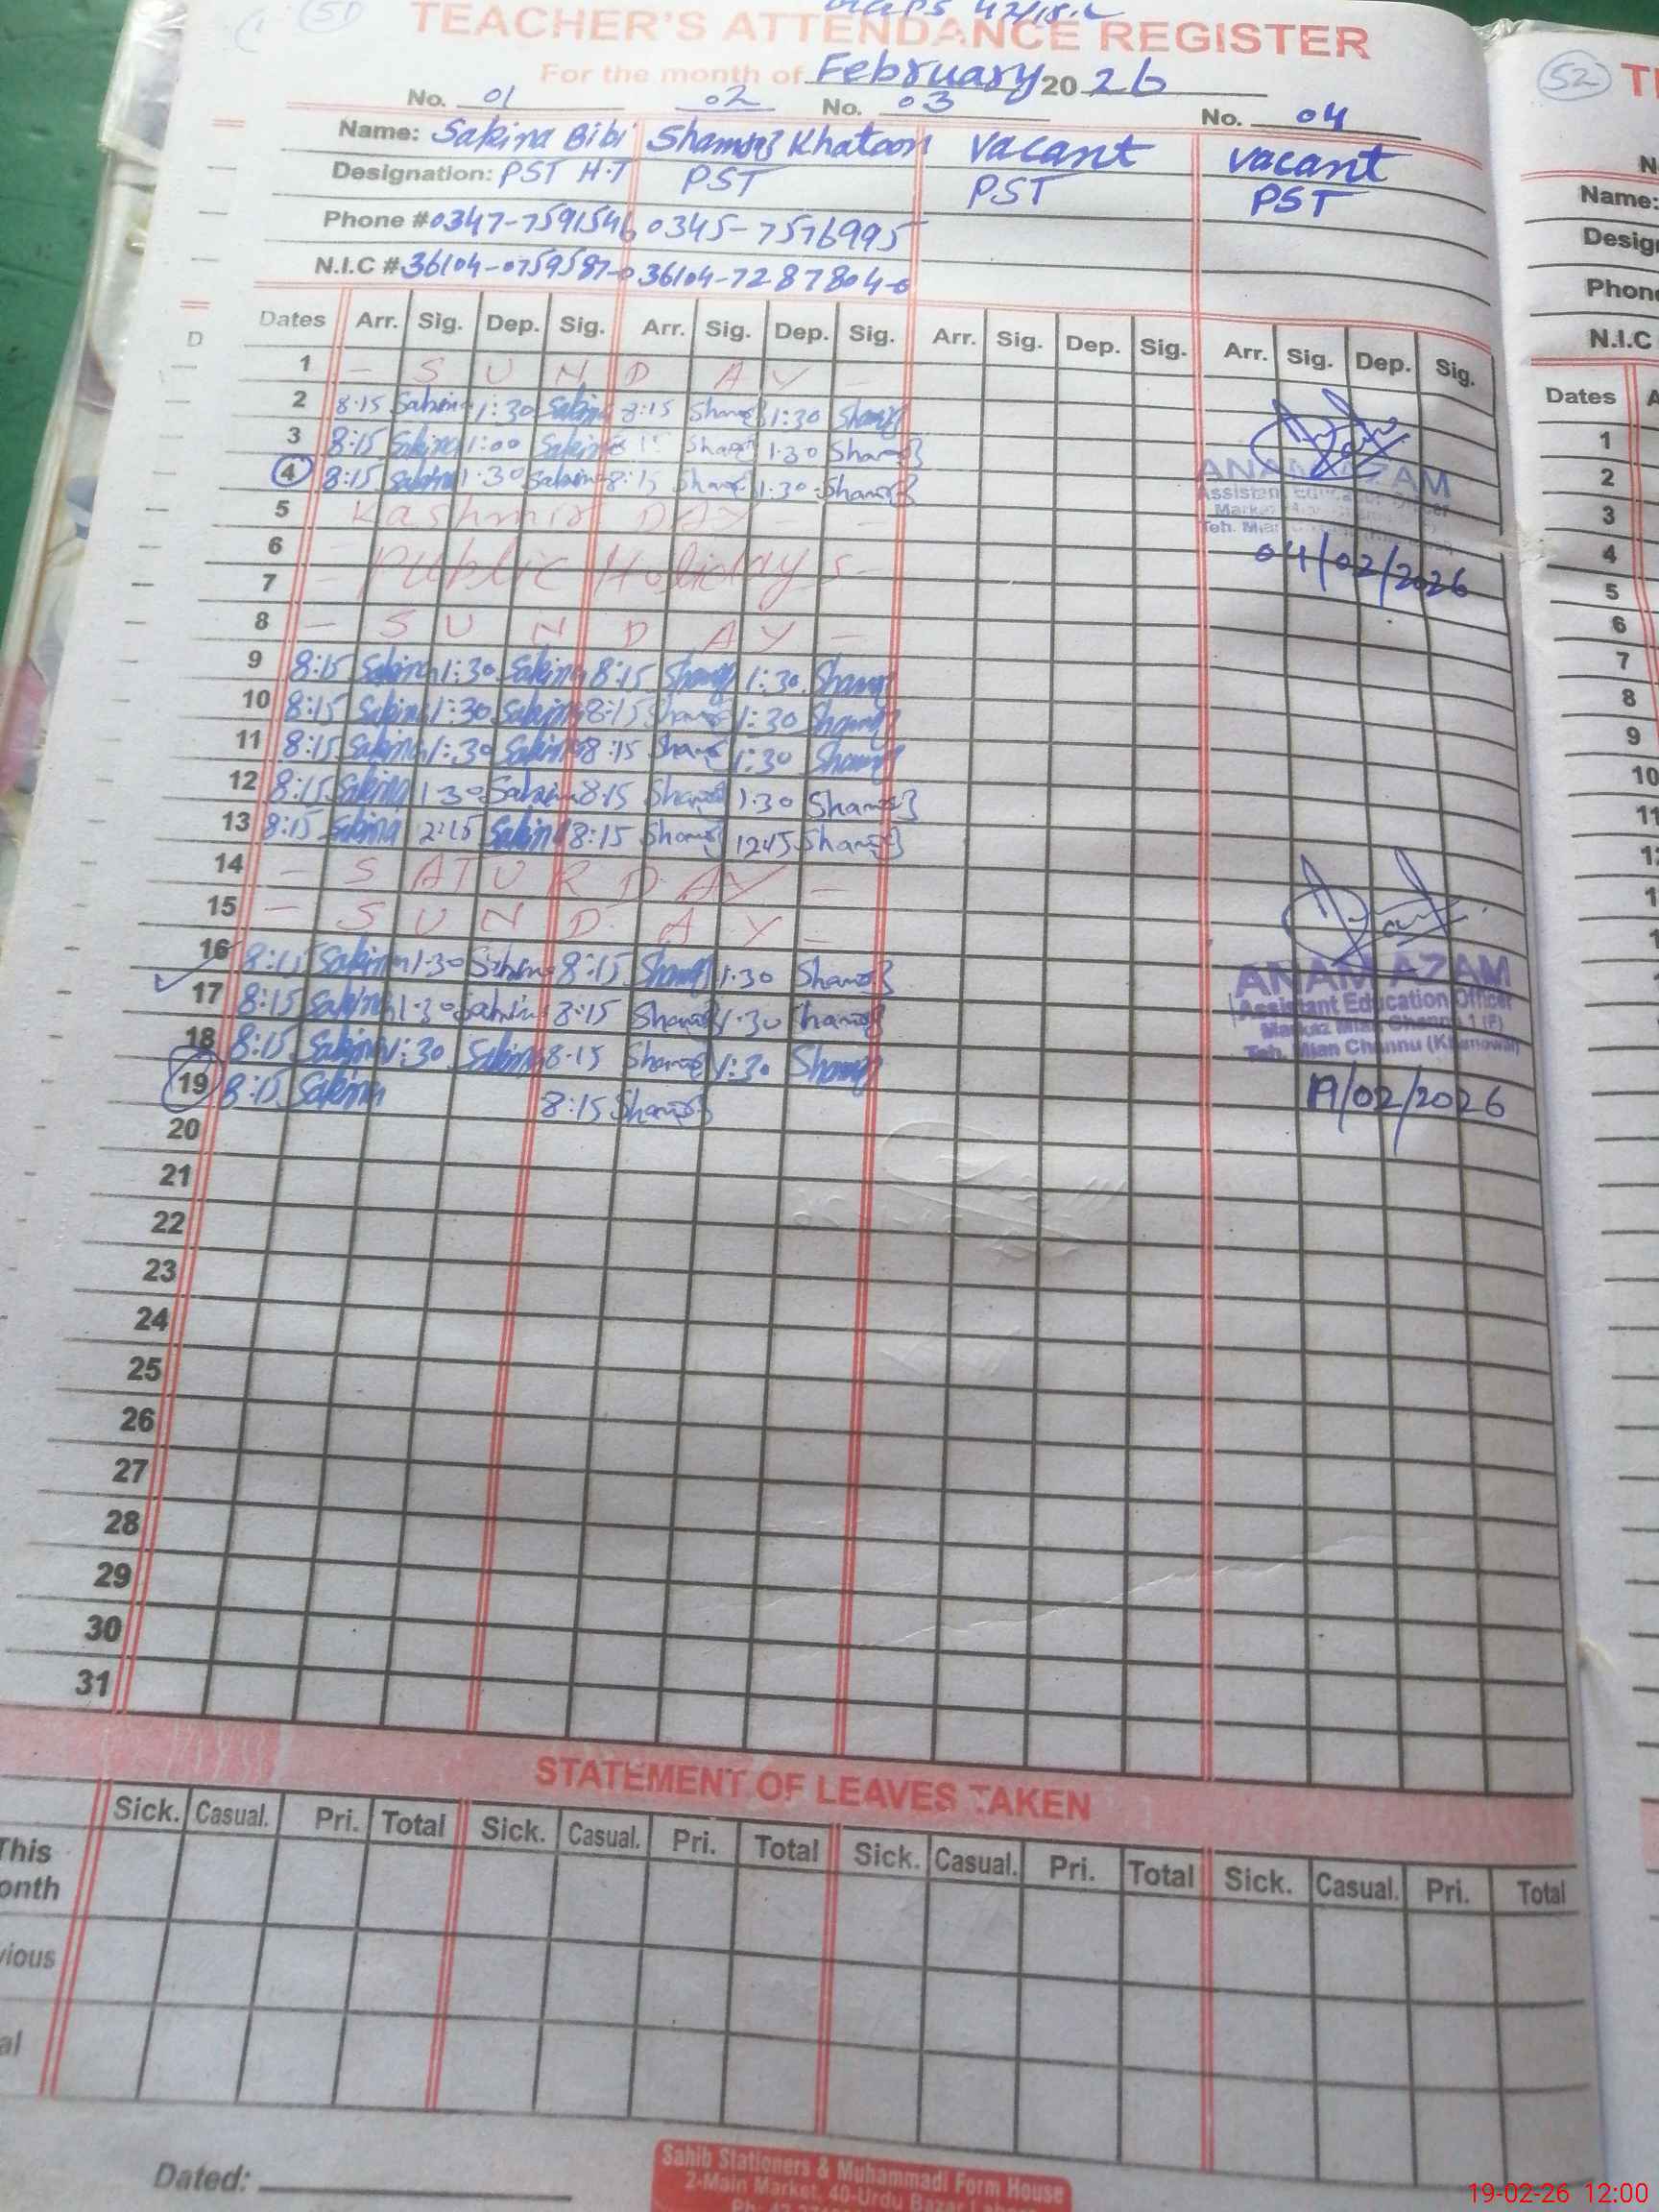 51
TEACHER'S ATTENDANCE REGISTER
For the month of February 2026
No. 01 02 No. 03 No. 04
Name: Sakina Bibi Shamsi Khatoon Vacant Vacant
Designation: PST H.T PST PST PST
Phone # 0347-7591546 0345-7576995
N.I.C # 36104-0759587-0 36104-7287804-0
Dates Arr. Sig. Dep. Sig. Arr. Sig. Dep. Sig. Arr. Sig. Dep. Sig. Arr. Sig. Dep. Sig.
1 - SUNDAY -
2 8:15 Sakina 1:30 Sakina 8:15 1:30
3 8:15 Sakina 1:00 Sakina 1:30
4 8:15 Sakina 1:30 Sakina 8:15 1:30
5 Kashmir DAY - -
6 - Public Holidays -
7
8 - SUNDAY -
9 8:15 Sakina 1:30 Sakina 8:15 1:30
10 8:15 Sakina 1:30 Sakina 8:15 1:30
11 8:15 Sakina 1:30 Sakina 8:15 1:30
12 8:15 Sakina 1:30 Sakina 8:15 1:30
13 8:15 Sakina 2:15 Sakina 8:15 1245
14 - SATURDAY -
15 - SUNDAY -
16 8:15 Sakina 1:30 Sakina 8:15 1:30
17 8:15 Sakina 1:30 Sakina 8:15 1:30
18 8:15 Sakina 1:30 Sakina 8:15 1:30
19 8:15 Sakina 8:15
20
21
22
23
24
25
26
27
28
29
30
31
ANAM AZAM
Assistant Education Officer
04/02/2026
ANAM AZAM
Assistant Education Officer
Markaz Mian Channu 1 (F)
Teh. Mian Channu (Khanewal)
19/02/2026
STATEMENT OF LEAVES TAKEN
Sick. Casual. Pri. Total Sick. Casual. Pri. Total Sick. Casual. Pri. Total Sick. Casual. Pri. Total
This
onth
vious
al
Dated:
Sahib Stationers & Muhammadi Form House
2-Main Market, 40-Urdu
52
Name:
Desig
Phon
N.I.C
Dates A
1
2
3
4
5
6
7
8
9
10
11
19-02-26 12:00